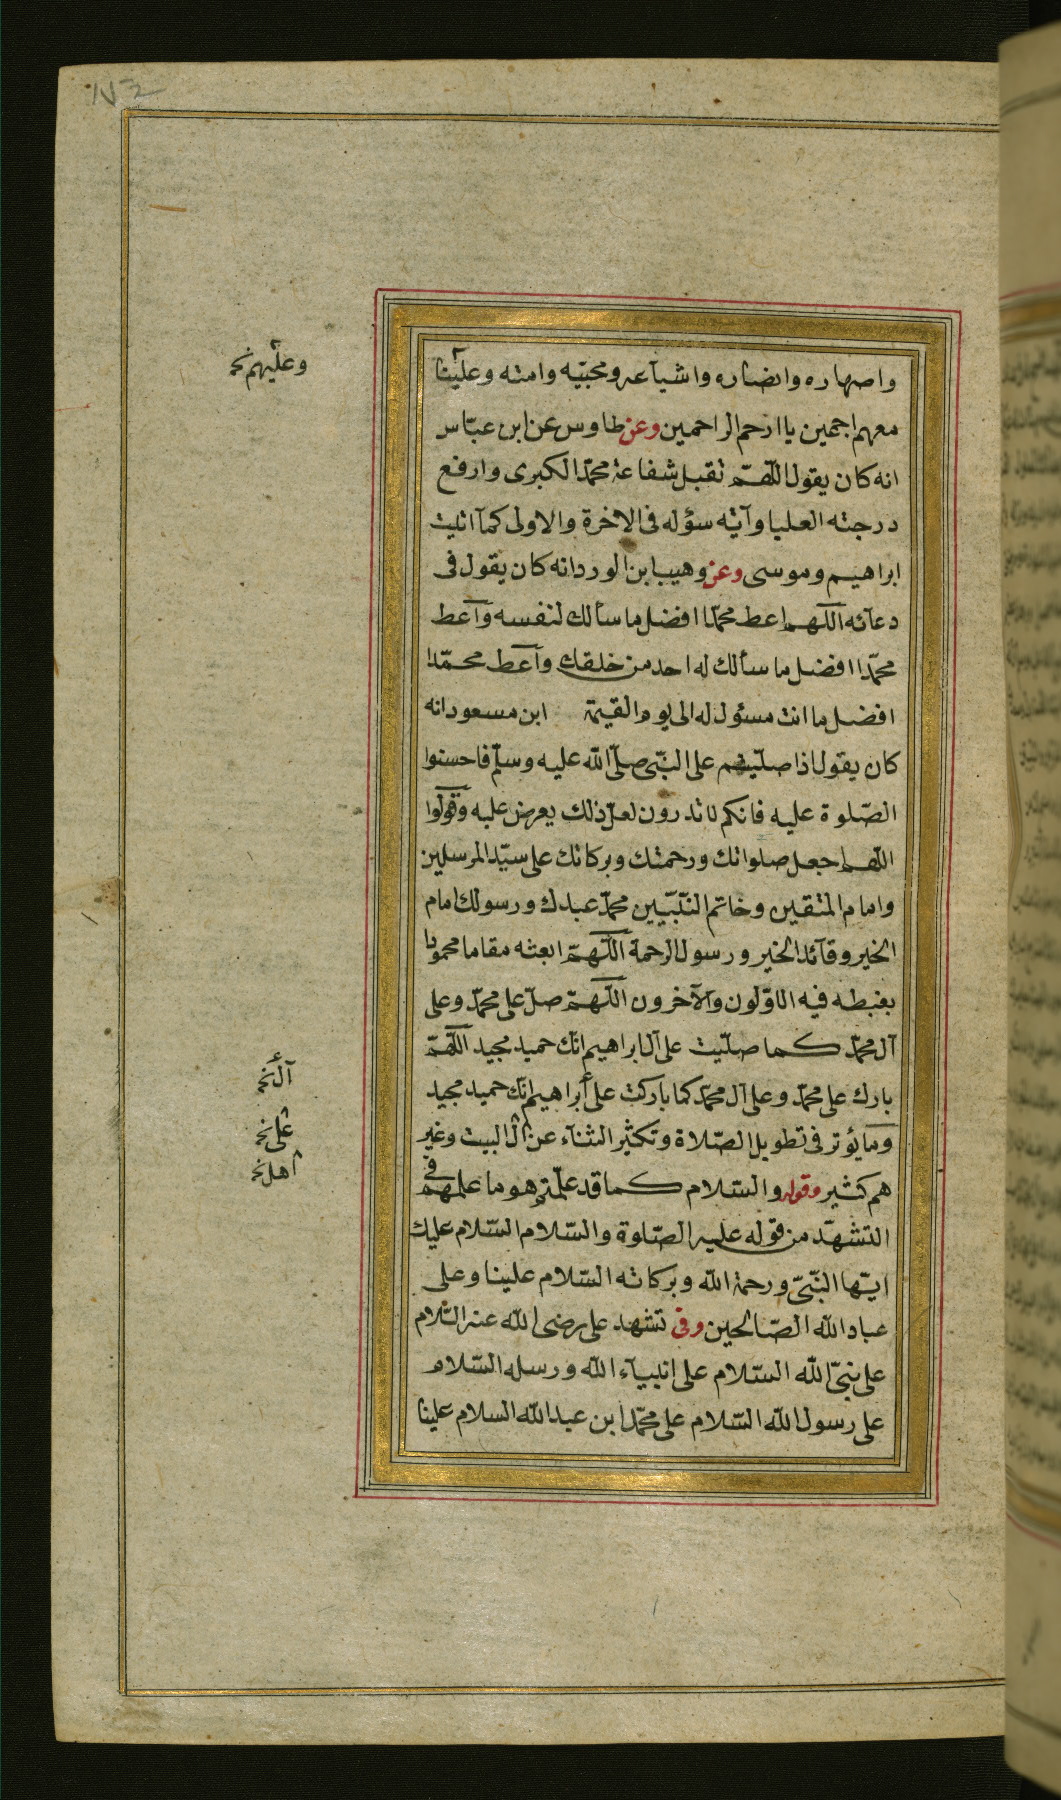 ١٧٣
واصهاره وانصاره واشياعه ومحبّيه وامته وعلينا
معهم اجمعين يا ارحم الراحمين وعن طاوس عن ابن عبّاس
انه كان يقول اللّهمّ تقبل شفاعة محمّد الكبرى وارفع
درجته العليا وآتيه سؤله فى الاخرة والاولى كمآ اتيت
ابراهيم وموسى وعن وهيب ابن الورد انه كان يقول فى
دعآئه اللّهم اعط محمّدا افضل ما سألك لنفسه وآعط
محمّدا افضل ما سألك له احد من خلقك وآعط محمّدا
افضل ما انت مسئول له الى يوم القيمة ابن مسعود انه
كان يقول اذا صلّيتم على النبّى صلّى اللّه عليه وسلّم فاحسنوا
الصّلوة عليه فانكم لا تدرون لعلّ ذلك يعرض عليه وقولوا
اللّهم اجعل صلواتك ورحمتك وبركاتك على سيّد المرسلين
وامام المتقين وخاتم النّبيّين محمّد عبدك ورسولك امام
الخير وقآئد الخير ورسول الرحمة اللّهمّ ابعثه مقاما محمودا
يغبطه فيه الاوّلون والآخرون اللّهمّ صلّ على محمّد وعلى
آل محمّد كما صلّيت على آل ابراهيم انّك حميد مجيد اللّهمّ
بارك على محمّد وعلى آل محمّد كما باركت على أبراهيم انّك حميد مجيد
وما يؤثر فى تطويل الصّلاة وتكثير الثنآء عن آل البيت وغير
هم كثير وقوله والسّلام كما قد علّمتم هو ما علمهم فى
التشهّد من قوله عليه الصّلوة والسّلام السّلام عليك
ايّها النّبىّ ورحمة اللّه وبركاته السّلام علينا وعلى
عباد اللّه الصّالحين وفى تشهد على رضى اللّه عنه السّلام
على نبىّ اللّه السّلام على انبيآء اللّه ورسله السّلام
على رسول اللّه السّلام على محمّد ابن عبد اللّه السلام علينا
وعليهم نخ
آل نخ
على نخ
اهل نخ